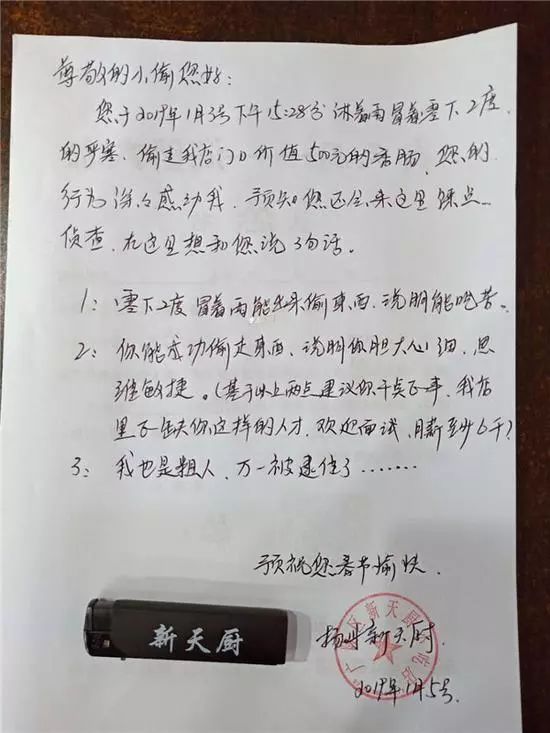 尊敬的小偷您好：
您于2019年1月3号下午15:28分淋着雨冒着零下2度
的严寒，偷走我店门口价值500元的香肠，您的
行为深々感动我，预知您还会来这里踩点
侦查，在这里想和您说3句话。
1：零下2度冒着雨能出来偷東西，说明能吃苦。
2：你能成功偷走東西，说明你胆大心细，思
维敏捷。（基于以上两点建议你干点正事，我店
里正缺你这样的人才，欢迎面试，月薪至少6千？
3：我也是粗人，万一被逮住了……
预祝您春节愉快，
新天厨
扬州新天厨
2019年1月5号